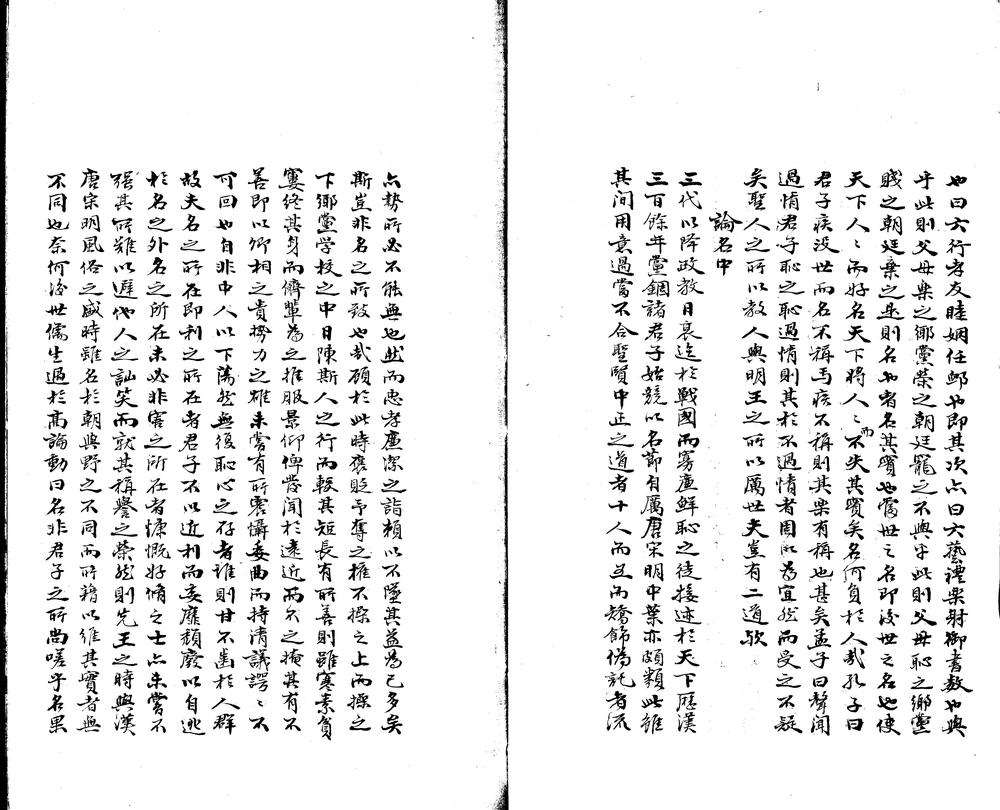 也曰六行孝友睦婣任卹也即其次亦曰六藝禮樂射御書数也與
乎此則父母樂之鄉黨榮之朝廷寵之不與乎此則父母恥之鄉黨
賤之朝廷棄之是則名也者名其實也當世之名即後世之名也使
天下人〻而好名天下將人〻而不失其實矣名何負於人哉孔子曰
君子疾没世而名不稱焉疾不稱則其樂有稱也甚矣孟子曰聲聞
過情君子恥之恥過情則其於不過情者固以為宜然而受之不疑
矣聖人之所以教人與明王之所以厲世夫豈有二道歟
論名中
三代以降政教日衰迄於戰國而寡廉鮮恥之徒接迹於天下歷漢
三百餘年黨錮諸君子始競以名節自厲唐宋明中葉亦頗類此雖
其間用意過當不合聖賢中正之道者十人而五而矯飾偽託者流
亦勢所必不能無也然而忠孝廉潔之詣頼以不墮其益為已多矣
斯豈非名之所致也哉顧於此時褒貶予奪之權不操之上而操之
下鄉黨学校之中日陳斯人之行而較其短長有所善則雖寒素貧
窶終其身而儕輩為之推服景仰俾聲聞於遠近而不之掩其有不
善即以卿相之貴勢力之雄未嘗有所震懾委曲而持清議諤〻不
可回也自非中人以下蕩然無復恥心之存者誰則甘不齒於人群
故夫名之所在即利之所在者君子不以近利而妄靡頽廢以自逃
於名之外名之所在未必非害之所在者慷慨好脩之士亦未嘗不
強其所難以遲他人之訕笑而就其稱譽之榮然則先王之時與漢
唐宋明風俗之盛時雖名於朝與野之不同而所藉以維其實者無
不同也奈何後世儒生過於髙論動曰名非君子之所尚嗟乎名果